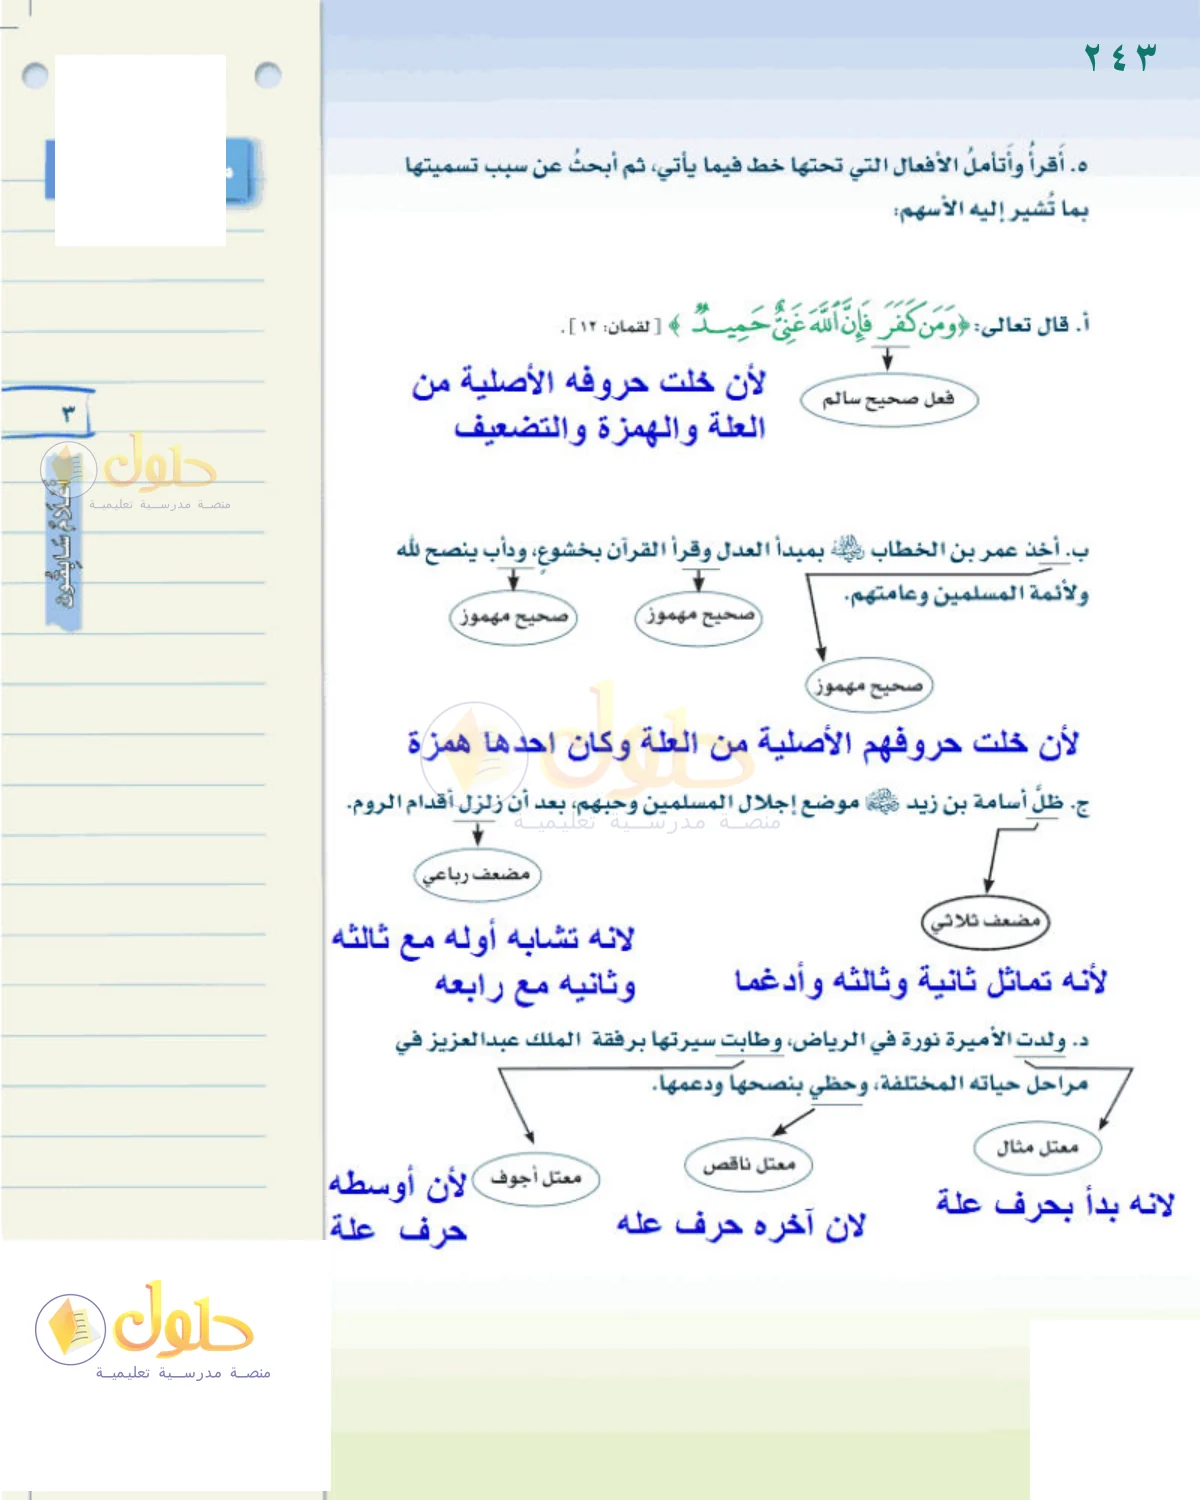 ٢٤٣
٥. أَقرأُ وأَتأملُ الأفعال التي تحتها خط فيما يأتي، ثم أبحثُ عن سبب تسميتها
بما تُشير إليه الأسهم:
أ. قال تعالى: ﴿وَمَن كَفَرَ فَإِنَّ ٱللَّهَ غَنِيٌّ حَمِيدٌ﴾ [لقمان: ١٢].
فعل صحيح سالم
لأن خلت حروفه الأصلية من
العلة والهمزة والتضعيف
٣
أعلام سابقون
حلول
منصة مدرسية تعليمية
ب. أخذ عمر بن الخطاب رضي الله عنه بمبدأ العدل وقرأ القرآن بخشوعٍ، ودأب ينصح لله
ولأئمة المسلمين وعامتهم.
صحيح مهموز
صحيح مهموز
صحيح مهموز
لأن خلت حروفهم الأصلية من العلة وكان احدها همزة
حلول
منصة مدرسية تعليمية
ج. ظلَّ أسامة بن زيد رضي الله عنه موضع إجلال المسلمين وحبهم، بعد أن زلزل أقدام الروم.
مضعف رباعي
مضعف ثلاثي
لانه تشابه أوله مع ثالثه
وثانيه مع رابعه
لأنه تماثل ثانية وثالثه وأدغما
د. ولدت الأميرة نورة في الرياض، وطابت سيرتها برفقة الملك عبدالعزيز في
مراحل حياته المختلفة، وحظي بنصحها ودعمها.
معتل مثال
معتل ناقص
معتل أجوف
لانه بدأ بحرف علة
لان آخره حرف عله
لأن أوسطه
حرف علة
حلول
منصة مدرسية تعليمية